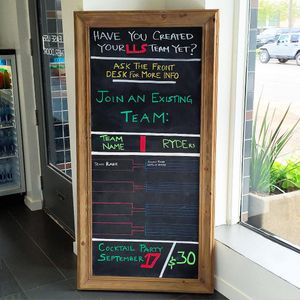 HAVE YOU CREATED
YOUR LLS TEAM YET?
ASK THE FRONT
DESK FOR MORE INFO
JOIN AN EXISTING
TEAM:
TEAM
NAME
RYDERS
TEAM NAME
COCKTAIL PARTY
SEPTEMBER 17 / $30